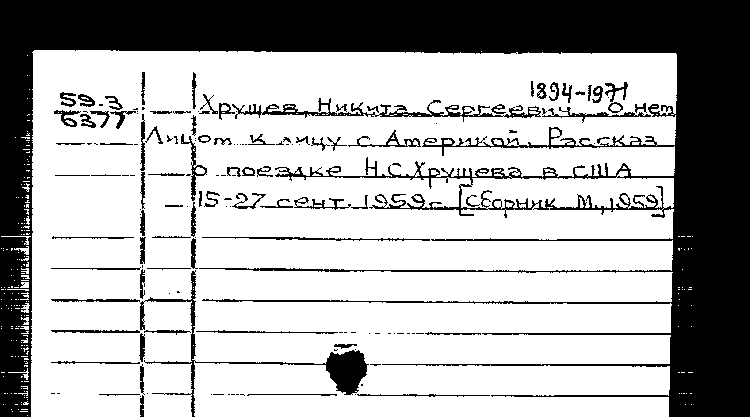 1894-1971
59.3 Хрущев, Никита Сергеевич, о нем
6377 Лицом к лицу с Америкой. Рассказ
о поездке Н.С.Хрущева в США
15-27 сент. 1959г. [Сборник М., 1959]